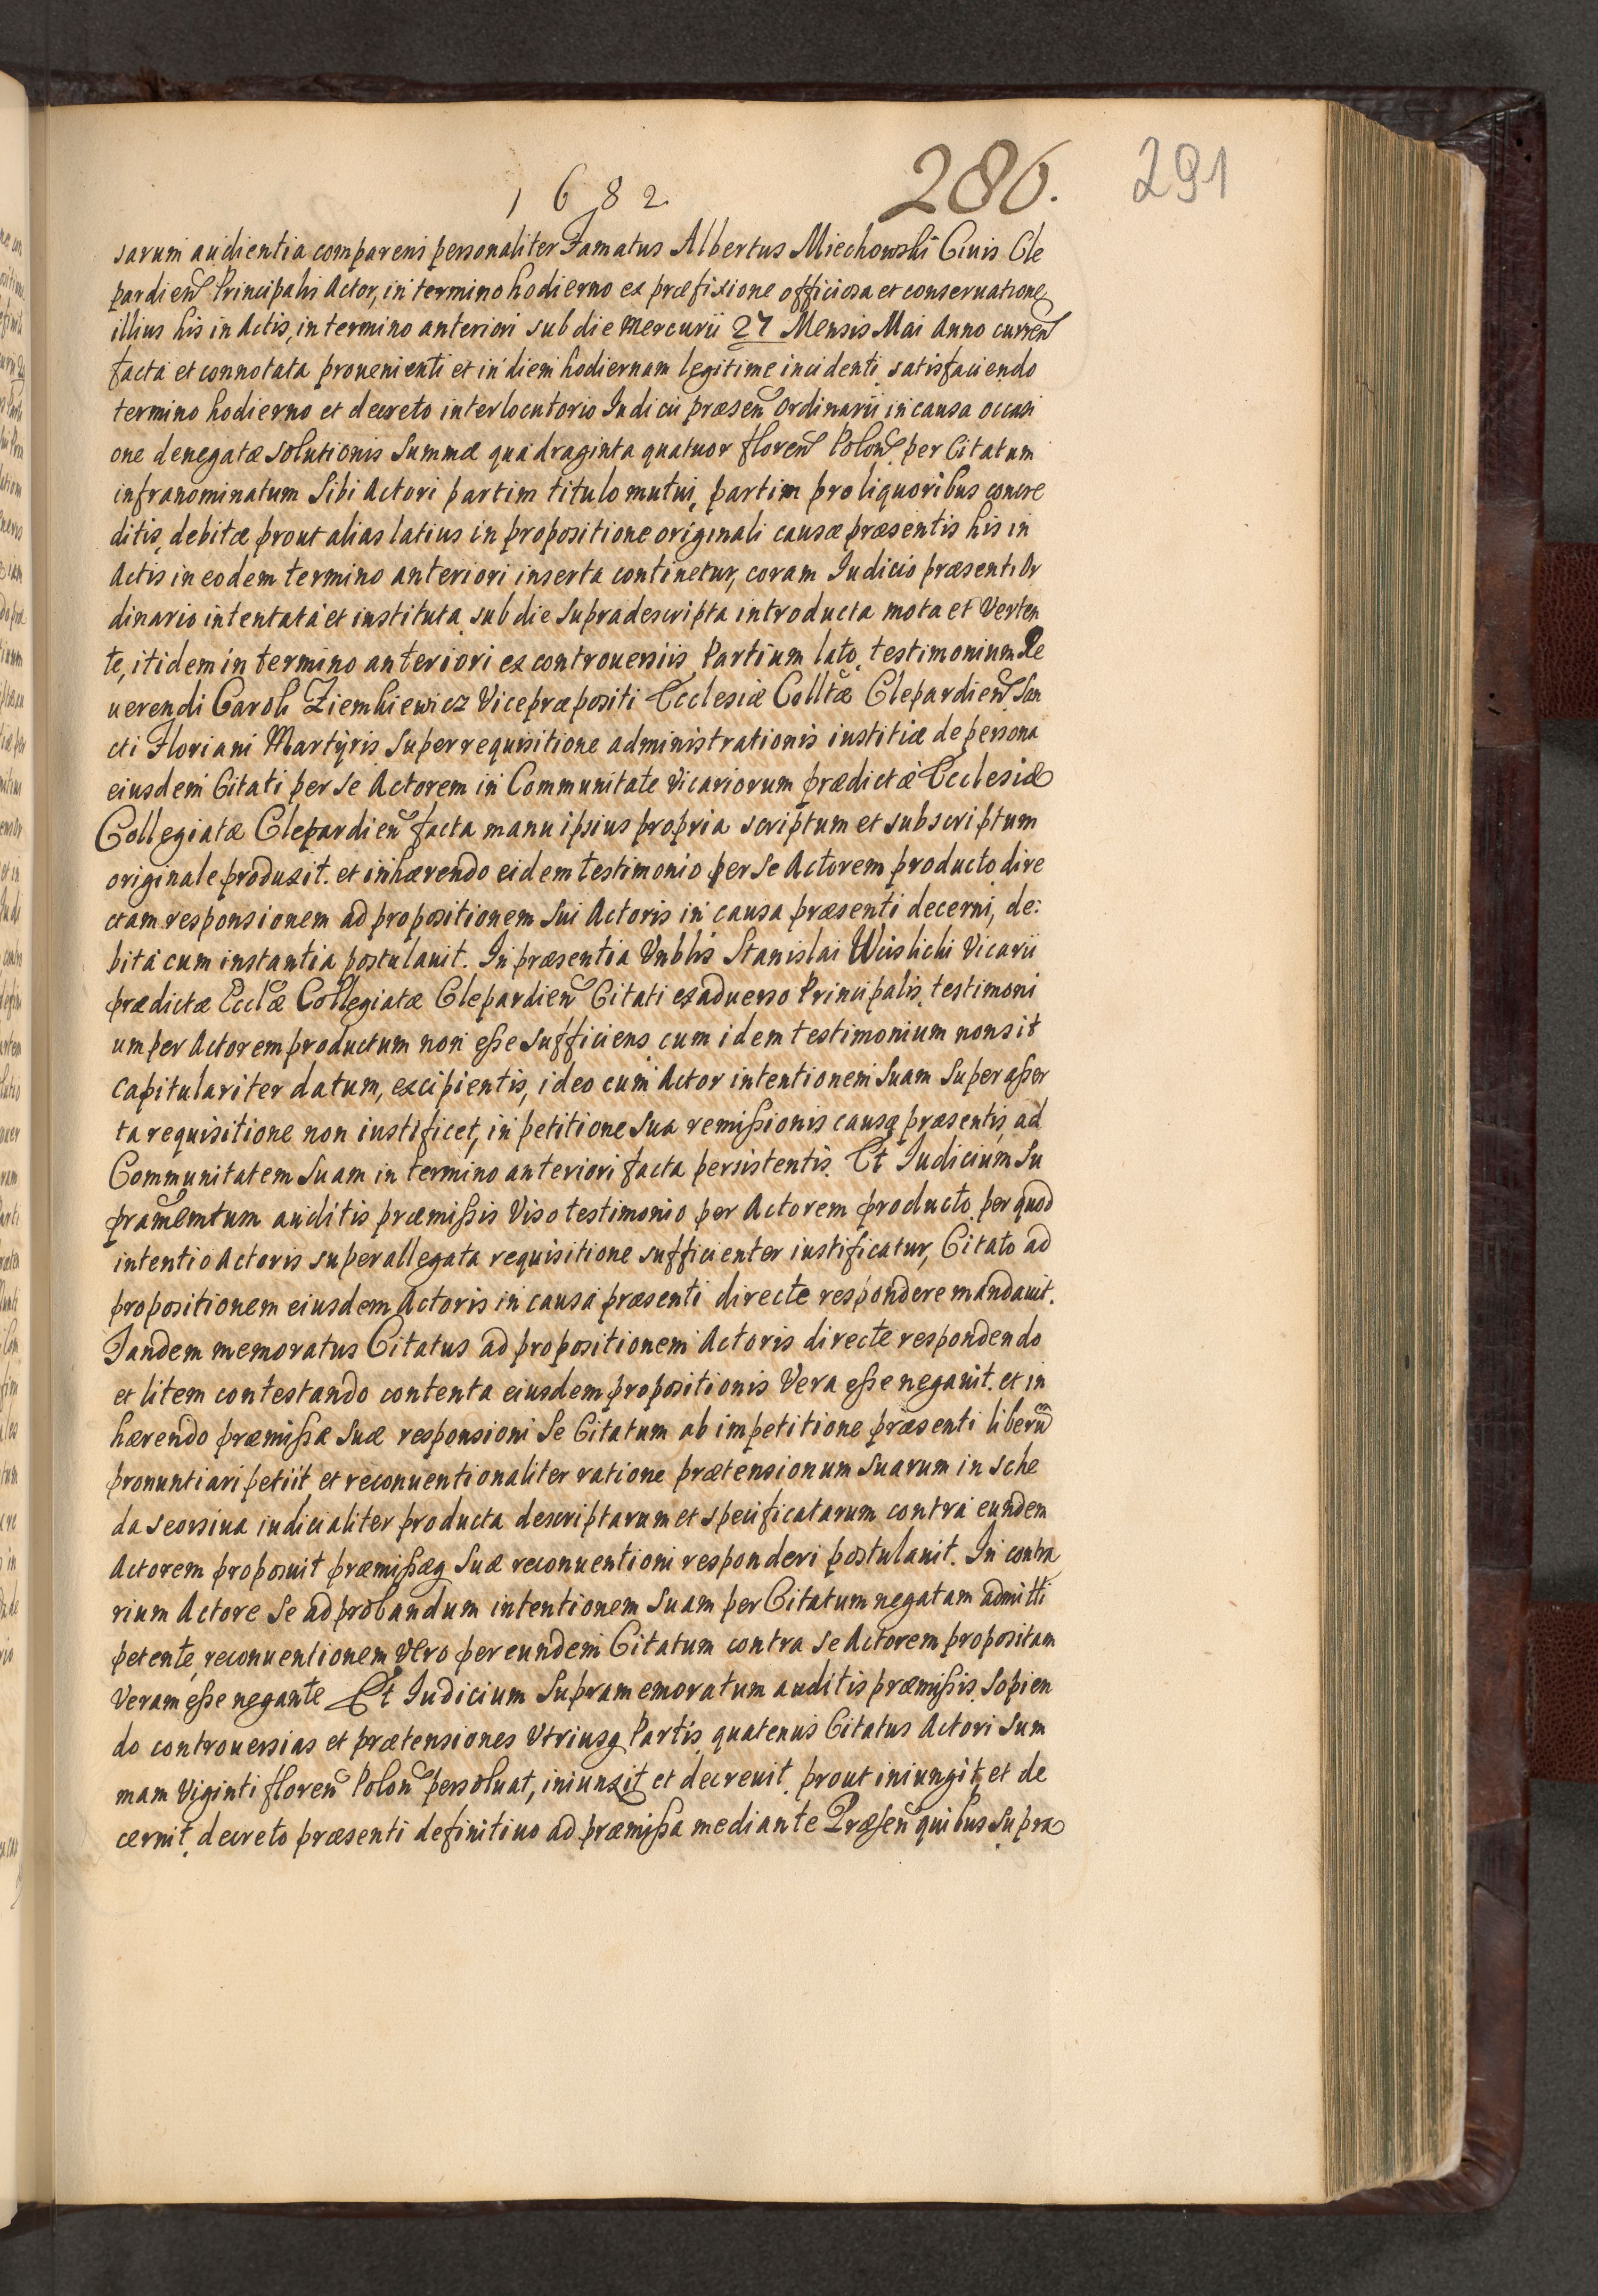 1682.
286.
291
sarum audientia comparens personaliter Famatus Albertus Miechowski Ciuis Cle
pardien̄ Principalis Actor, in termino hodierno ex præfixione officiosa et conseruatione
illius his in Actis, in termino anteriori sub die Mercurii 27 Mensis Mai Anno curren̄
facta et connotata prouenienti et in diem hodiernam legitime incidenti satisfaciendo
termino hodierno et decreto interlocutorio Iudicii præsen̄ Ordinarii in causa occasi
one denegatæ solutionis Summæ quadraginta quatuor floren̄ Polon̄ per Citatum
infranominatum Sibi Actori partim titulo mutui, partim pro liquoribus concre
ditis, debitæ prout alias latius in propositione originali causæ præsentis his in
Actis in eodem termino anteriori inserta continetur, coram Iudicio præsenti Or
dinario intentata et instituta, sub die Supradescripta introducta mota et Verten
te, itidem in termino anteriori ex controuersiis Partium lato, testimonium Re
uerendi Caroli Ziemkiewicz Vicepræpositi Ecclesiæ Colltæ Clepardien̄ San
cti Floriani Martyris Super requisitione administrationis iustitiæ de persona
eiusdem Citati per se Actorem in Communitate Vicariorum prædictæ Ecclesiæ
Collegiatæ Clepardien̄ facta manu ipsius propria scriptum et subscriptum
originale produxit. et inhærendo eidem testimonio per se Actorem producto dire
ctam responsionem ad propositionem Sui Actoris in causa præsenti decerni, de:
bita cum instantia postulauit. In præsentia Vnblis Stanislai Wislicki Vicarii
prædictæ Ecclæ Collegiatæ Clepardien̄ Citati ex aduerso Principalis, testimoni
um per Actorem productum non eße Sufficiens cum idem testimonium non sit
capitulariter datum, excipientis, ideo cum Actor intentionem Suam Super aßer
ta requisitione non iustificet, in petitione Sua remißionis causæ præsentis ad
Communitatem Suam in termino anteriori facta persistentis. Et Iudicium Su
pramem̄tum auditis præmißis Viso testimonio per Actorem producto, per quod
intentio Actoris super allegata requisitione sufficienter iustificatur, Citato ad
propositionem eiusdem Actoris in causa præsenti directe respondere mandauit.
Tandem memoratus Citatus ad propositionem Actoris directe respondendo
et litem contestando contenta eiusdem propositionis Vera eße negauit. et in
hærendo præmißæ Suæ responsioni Se Citatum ab impetitione præsenti liberū
pronuntiari petiit, et reconuentionaliter ratione prætensionum Suarum in sche
da seorsiua iudicialiter producta descriptarum et specificatarum contra eundem
Actorem proposuit præmißæq Suæ reconuentioni responderi postulauit. In contra
rium Actore Se ad probandum intentionem Suam per Citatum negatam admitti
petente, reconuentionem Vero per eundem Citatum contra Se Actorem propositam
Veram eße negante Et Iudicium Supramemoratum auditis præmißis, Sopien
do controuersias et prætensiones Vtriusq Partis, quatenus Citatus Actori Sum
mam Viginti floren̄ Polon̄ persoluat, iniunxit et decreuit, prout iniungit, et de
cernit, decreto præsenti definitiuo ad præmißa mediante Præsen̄ quibus Supra